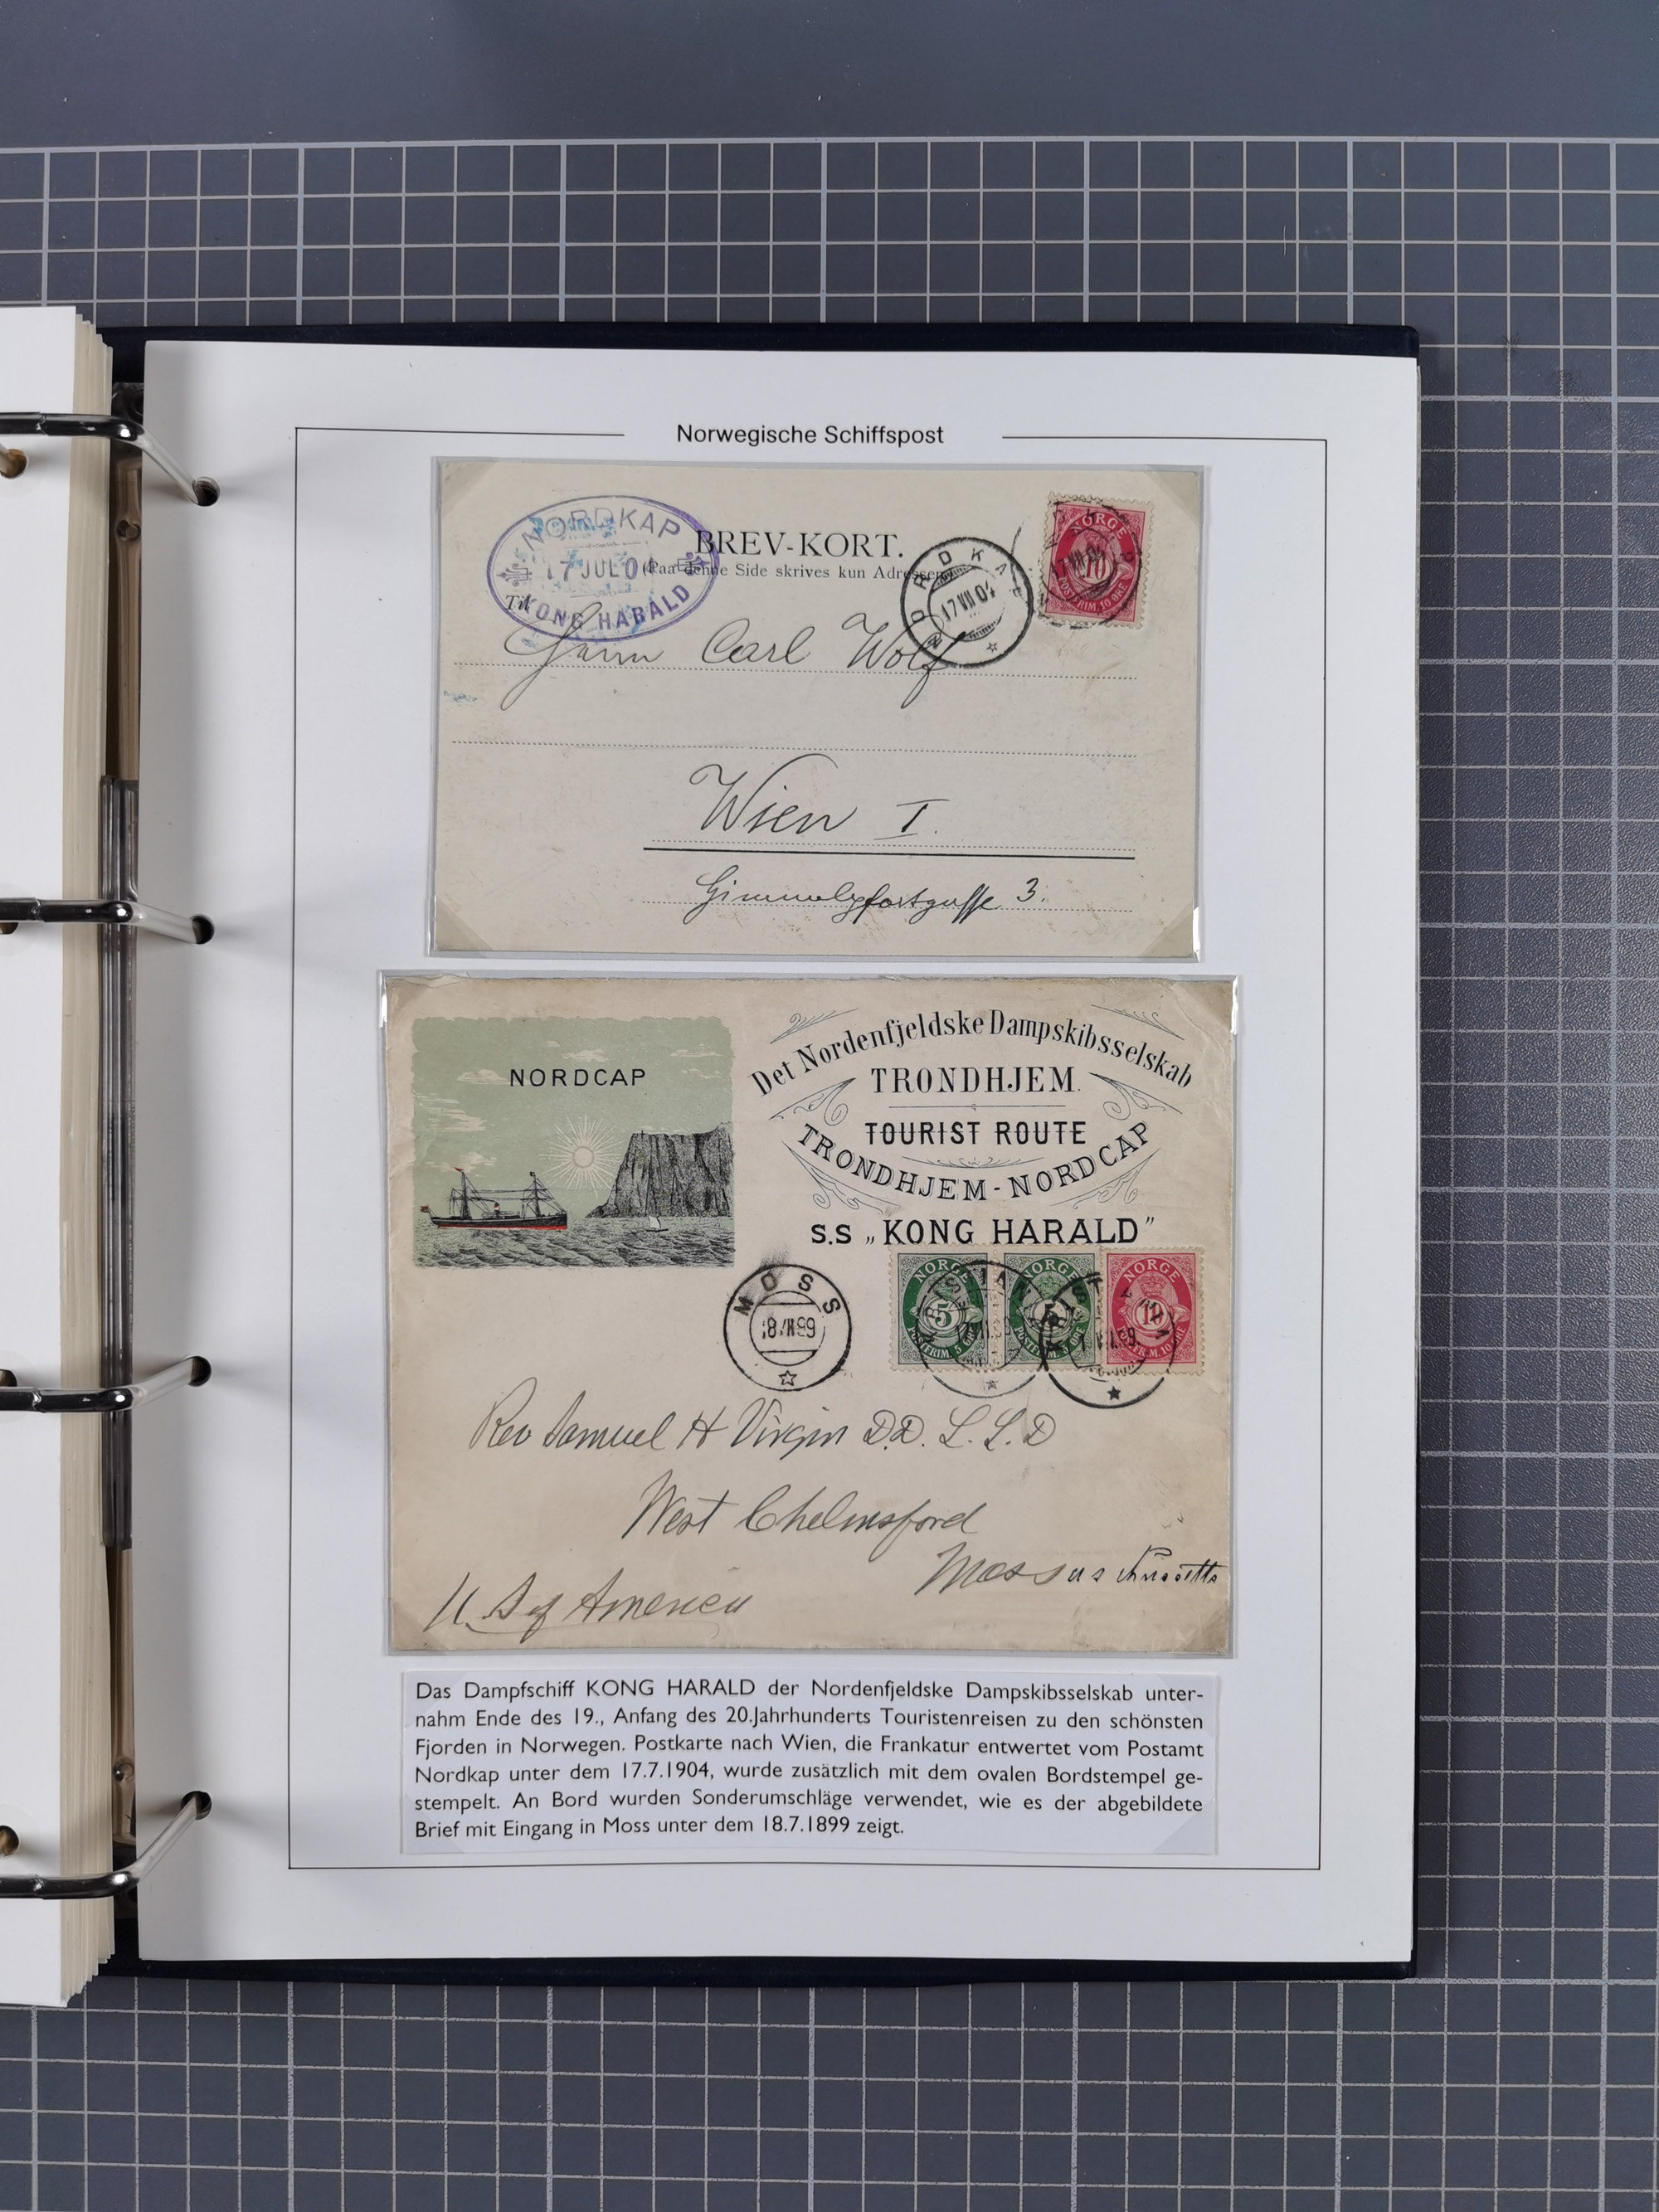 Norwegische Schiffspost
NORDKAP
17 JUL 04
KONG HARALD
BREV-KORT.
(Paa denne Side skrives kun Adressen)
NORDKAP
17 VII 04
NORGE
10
POSTFRIM. 10 ØRE
Til
Herrn Carl Wolf
Wien I.
Himmelpfortgasse 3.
NORDCAP
Det Nordenfjeldske Dampskibsselskab
TRONDHJEM.
TOURIST ROUTE
TRONDHJEM-NORDCAP
S.S „KONG HARALD”
MOSS
18 VII 99
NORGE
5
POSTFRIM. 5 ØRE
NORGE
5
POSTFRIM. 5 ØRE
NORGE
10
POSTFR.M. 10 ØRE
Rev Samuel H Virgin D.D. L.L.D
West Chelmsford
Massachusetts
U. S of America
Das Dampfschiff KONG HARALD der Nordenfjeldske Dampskibsselskab unter-
nahm Ende des 19., Anfang des 20.Jahrhunderts Touristenreisen zu den schönsten
Fjorden in Norwegen. Postkarte nach Wien, die Frankatur entwertet vom Postamt
Nordkap unter dem 17.7.1904, wurde zusätzlich mit dem ovalen Bordstempel ge-
stempelt. An Bord wurden Sonderumschläge verwendet, wie es der abgebildete
Brief mit Eingang in Moss unter dem 18.7.1899 zeigt.